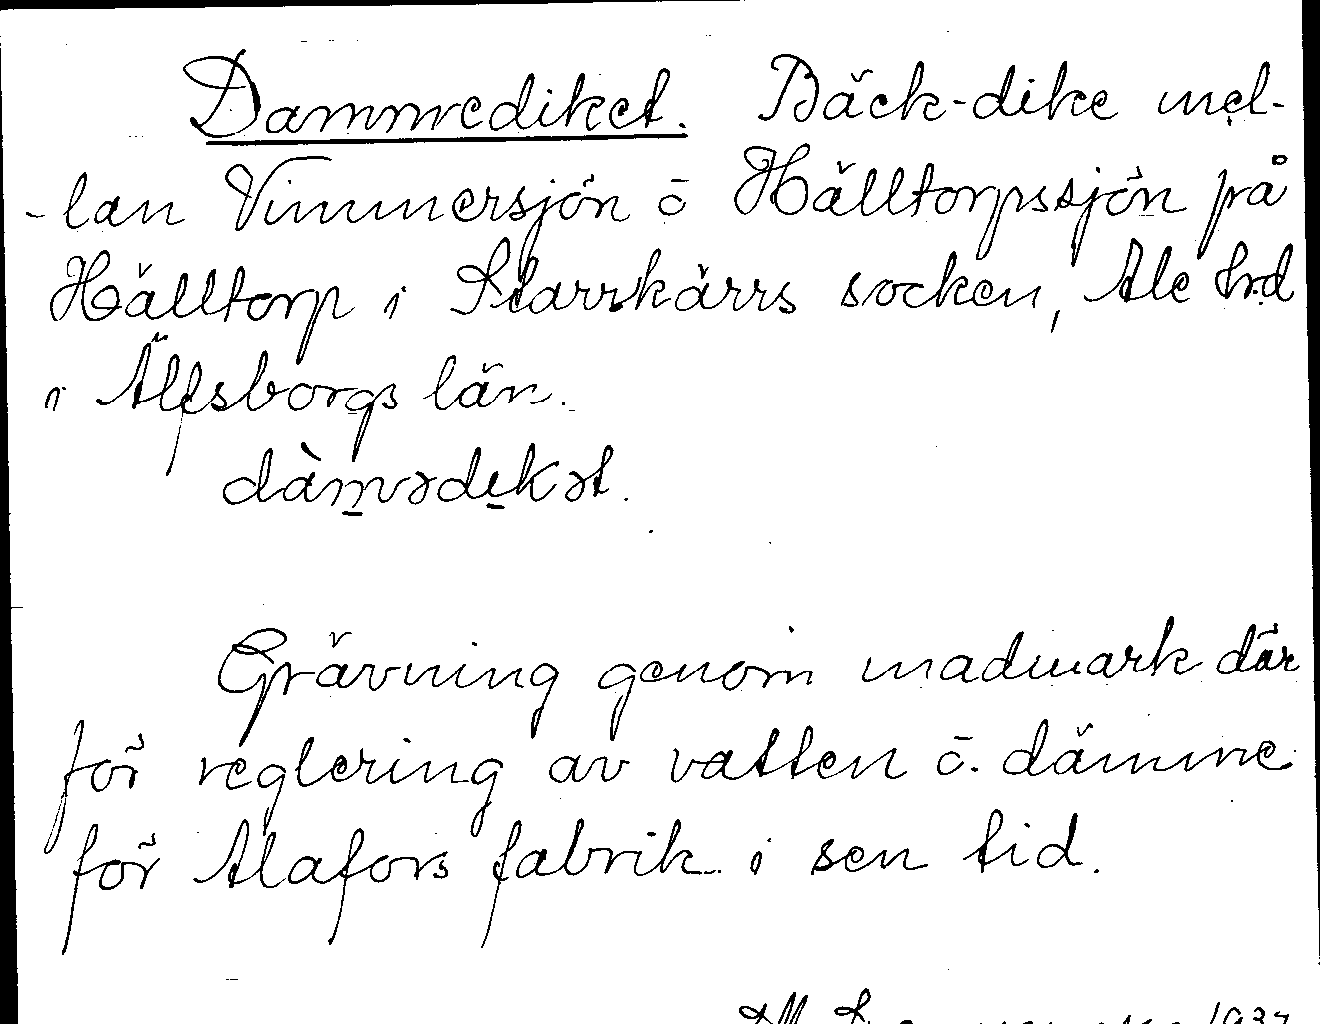 Dammediket. Bäck-dike mel-
-lan Vimmersjön ō Hälltorpssjön på
Hälltorp i Starrkärrs socken, Ale hd
i Älfsborgs län.
dàm̲ədi̲kət.
Grävning genom madmark där
för reglering av vatten ō. dämme
för Alafors fabrik i sen tid.
1937